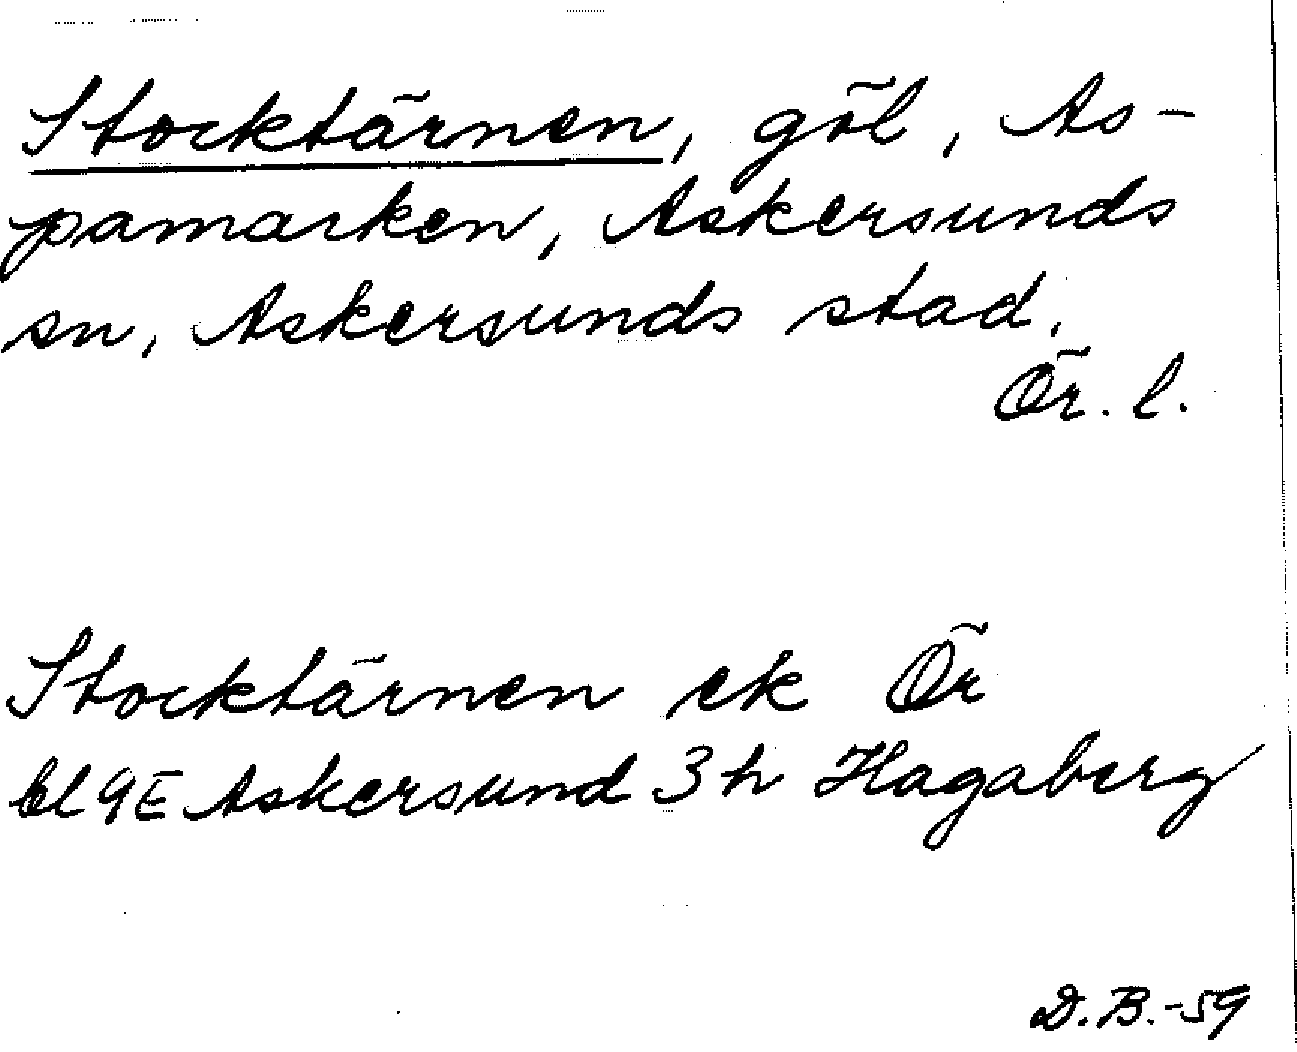 Stocktärnen, göl, As-
pamarken, Askersunds
sn, Askersunds stad,
Ör. l.
Stocktärnen ek Ör
bl 9E Askersund 3h Hagaberg
D.B.-59